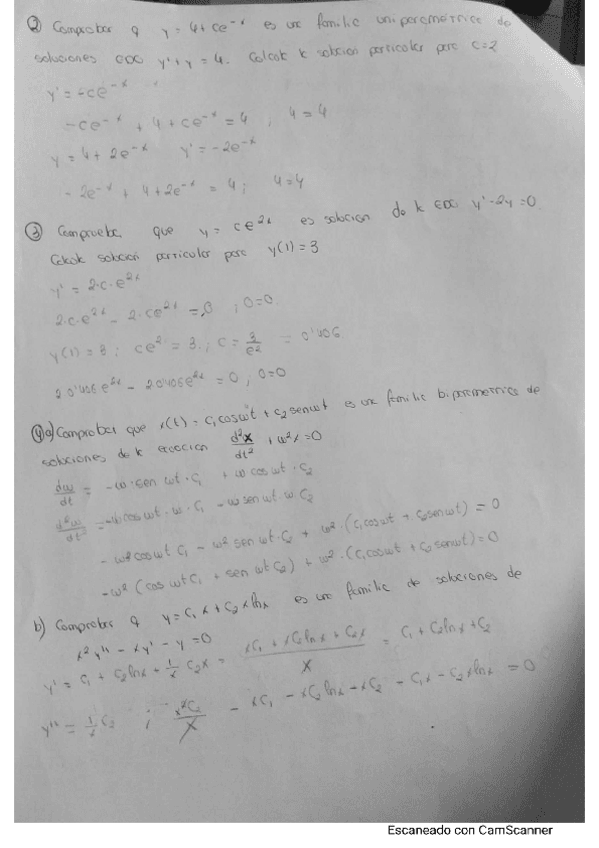 ② Comprobar q y = 4 + ce^-x es una familia uniparametrica de
soluciones EDO y' + y = 4. Calcula la solucion particular para C=2
y' = -ce^-x
-ce^-x + 4 + ce^-x = 4 , 4 = 4
y = 4 + 2e^-x y' = -2e^-x
-2e^-x + 4 + 2e^-x = 4 ; 4=4
③ Comprueba que y = ce^2x es solucion de la EDO y' - 2y = 0.
Calcula solucion particular para y(1) = 3
y' = 2·c·e^2x
2·c·e^2x - 2·ce^2x = 0 , 0=0
y(1) = 3 ; ce^2 = 3 ; c = 3/e^2 = 0'406
2 0'406e^2x - 2 0'406e^2x = 0 , 0=0
④ a) Comprobar que x(t) = c₁cosωt + c₂senωt es una familia biparametrica de
soluciones de la ecuacion d²x/dt² + ω²x = 0
dω/dt = -ω·sen ωt·c₁ + ω cos ωt·c₂
d²ω/dt² = -ω cos ωt·ω·c₁ - ω sen ωt·ω c₂
-ω² cos ωt c₁ - ω² sen ωt·c₂ + ω²·(c₁cosωt + c₂senωt) = 0
-ω² (cos ωt c₁ + sen ωt c₂) + ω²·(c₁cosωt + c₂senωt) = 0
b) Comprobar q y = c₁x + c₂x lnx es una familia de soluciones de
x²y'' - xy' - y = 0
y' = c₁ + c₂lnx + 1/x c₂x = xc₁ + xc₂lnx + c₂x / x = c₁ + c₂lnx + c₂
y'' = 1/x c₂ ; x²c₂/x - xc₁ - xc₂lnx - xc₂ - c₁x - c₂xlnx = 0
Escaneado con CamScanner